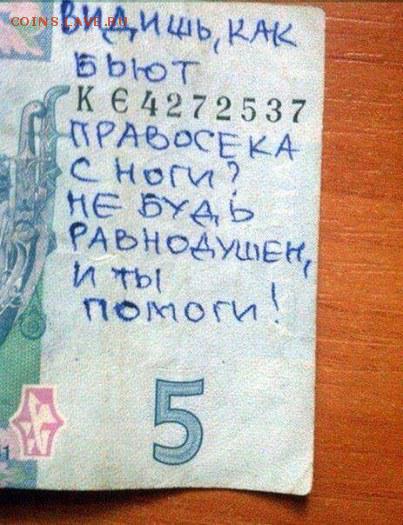 COINS.LAVE.RU
ВИДИШЬ, КАК
БЬЮТ
КЄ4272537
ПРАВОСЕКА
С НОГИ?
НЕ БУДЬ
РАВНОДУШЕН,
И ТЫ
ПОМОГИ!
5